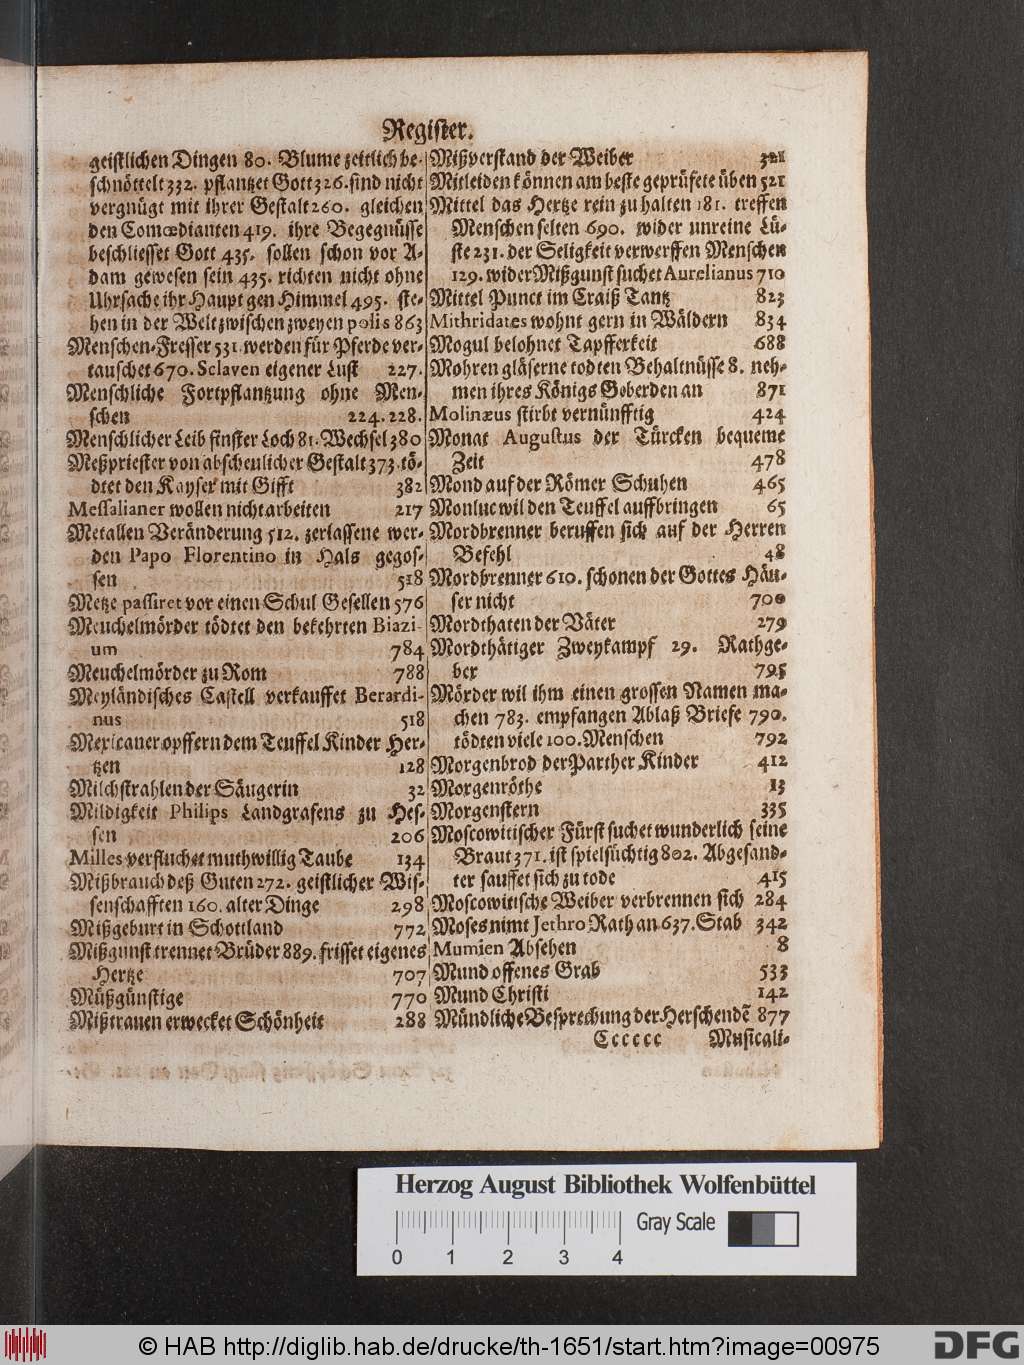 Register.
geistlichen Dingen 80. Blume zeitlich be-
schnöttelt 332. pflantzet Gott 326. sind nicht
vergnügt mit ihrer Gestalt 260. gleichen
den Comœdianten 419. ihre Begegnüsse
beschliesset Gott 435. sollen schon vor A-
dam gewesen sein 435. richten nicht ohne
Uhrsache ihr Haupt gen Himmel 495. ste-
hen in der Welt zwischen zweyen polis 863
Menschen-Fresser 531. werden für Pferde ver-
tauschet 670. Sclaven eigener Lust 227.
Menschliche Fortpflantzung ohne Men-
schen 224. 228.
Menschlicher Leib finster Loch 81. Wechsel 380
Meßpriester von abscheulicher Gestalt 373. tö-
dtet den Kayser mit Gifft 382
Messalianer wollen nicht arbeiten 217
Metallen Veränderung 512. zerlassene wer-
den Papo Florentino in Hals gegos-
sen 518
Metze passiret vor einen Schul Gesellen 576
Meuchelmörder tödtet den bekehrten Biazi-
um 784
Meuchelmörder zu Rom 788
Meyländisches Castell verkauffet Berardi-
nus 518
Mexicaner opffern dem Teuffel Kinder Her-
tzen 128
Milchstrahlen der Säugerin 32
Mildigkeit Philips Landgrafens zu Hes-
sen 206
Milles verfluchet muthwillig Taube 134
Mißbrauch deß Guten 272. geistlicher Wis-
senschafften 160. alter Dinge 298
Mißgeburt in Schottland 772
Mißgunst trennet Brüder 889. frisset eigenes
Hertze 707
Müßgünstige 770
Mißtrauen erwecket Schönheit 288
Mißverstand der Weiber 321
Mitleiden können am beste geprüfete üben 521
Mittel das Hertze rein zu halten 181. treffen
Menschen selten 690. wider unreine Lü-
ste 231. der Seligkeit verwerffen Menschen
129. wider Mißgunst suchet Aurelianus 710
Mittel Punct im Craiß Tantz 823
Mithridates wohnt gern in Wäldern 834
Mogul belohnet Tapfferkeit 688
Mohren gläserne todten Behaltnüsse 8. neh-
men ihres Königs Geberden an 871
Molinæus stirbt vernünfftig 424
Monat Augustus der Türcken bequeme
Zeit 478
Mond auf der Römer Schuhen 465
Monluc wil den Teuffel auffbringen 65
Mordbrenner beruffen sich auf der Herren
Befehl 48
Mordbrenner 610. schonen der Gottes Häu-
ser nicht 700
Mordthaten der Väter 279
Mordthätiger Zweykampf 29. Rathge-
ber 795
Mörder wil ihm einen grossen Namen ma-
chen 783. empfangen Ablaß Briefe 790.
tödten viele 100. Menschen 792
Morgenbrod der Parther Kinder 412
Morgenröthe 13
Morgenstern 335
Moscowitischer Fürst suchet wunderlich seine
Braut 371. ist spielsüchtig 802. Abgesand-
ter sauffet sich zu tode 415
Moscowitische Weiber verbrennen sich 284
Moses nimt Jethro Rath an 637. Stab 342
Mumien Absehen 8
Mund offenes Grab 533
Mund Christi 142
Mündliche Besprechung der Herschendẽ 877
Cccccc Musicali-
Herzog August Bibliothek Wolfenbüttel
Gray Scale
0 1 2 3 4
© HAB http://diglib.hab.de/drucke/th-1651/start.htm?image=00975
DFG